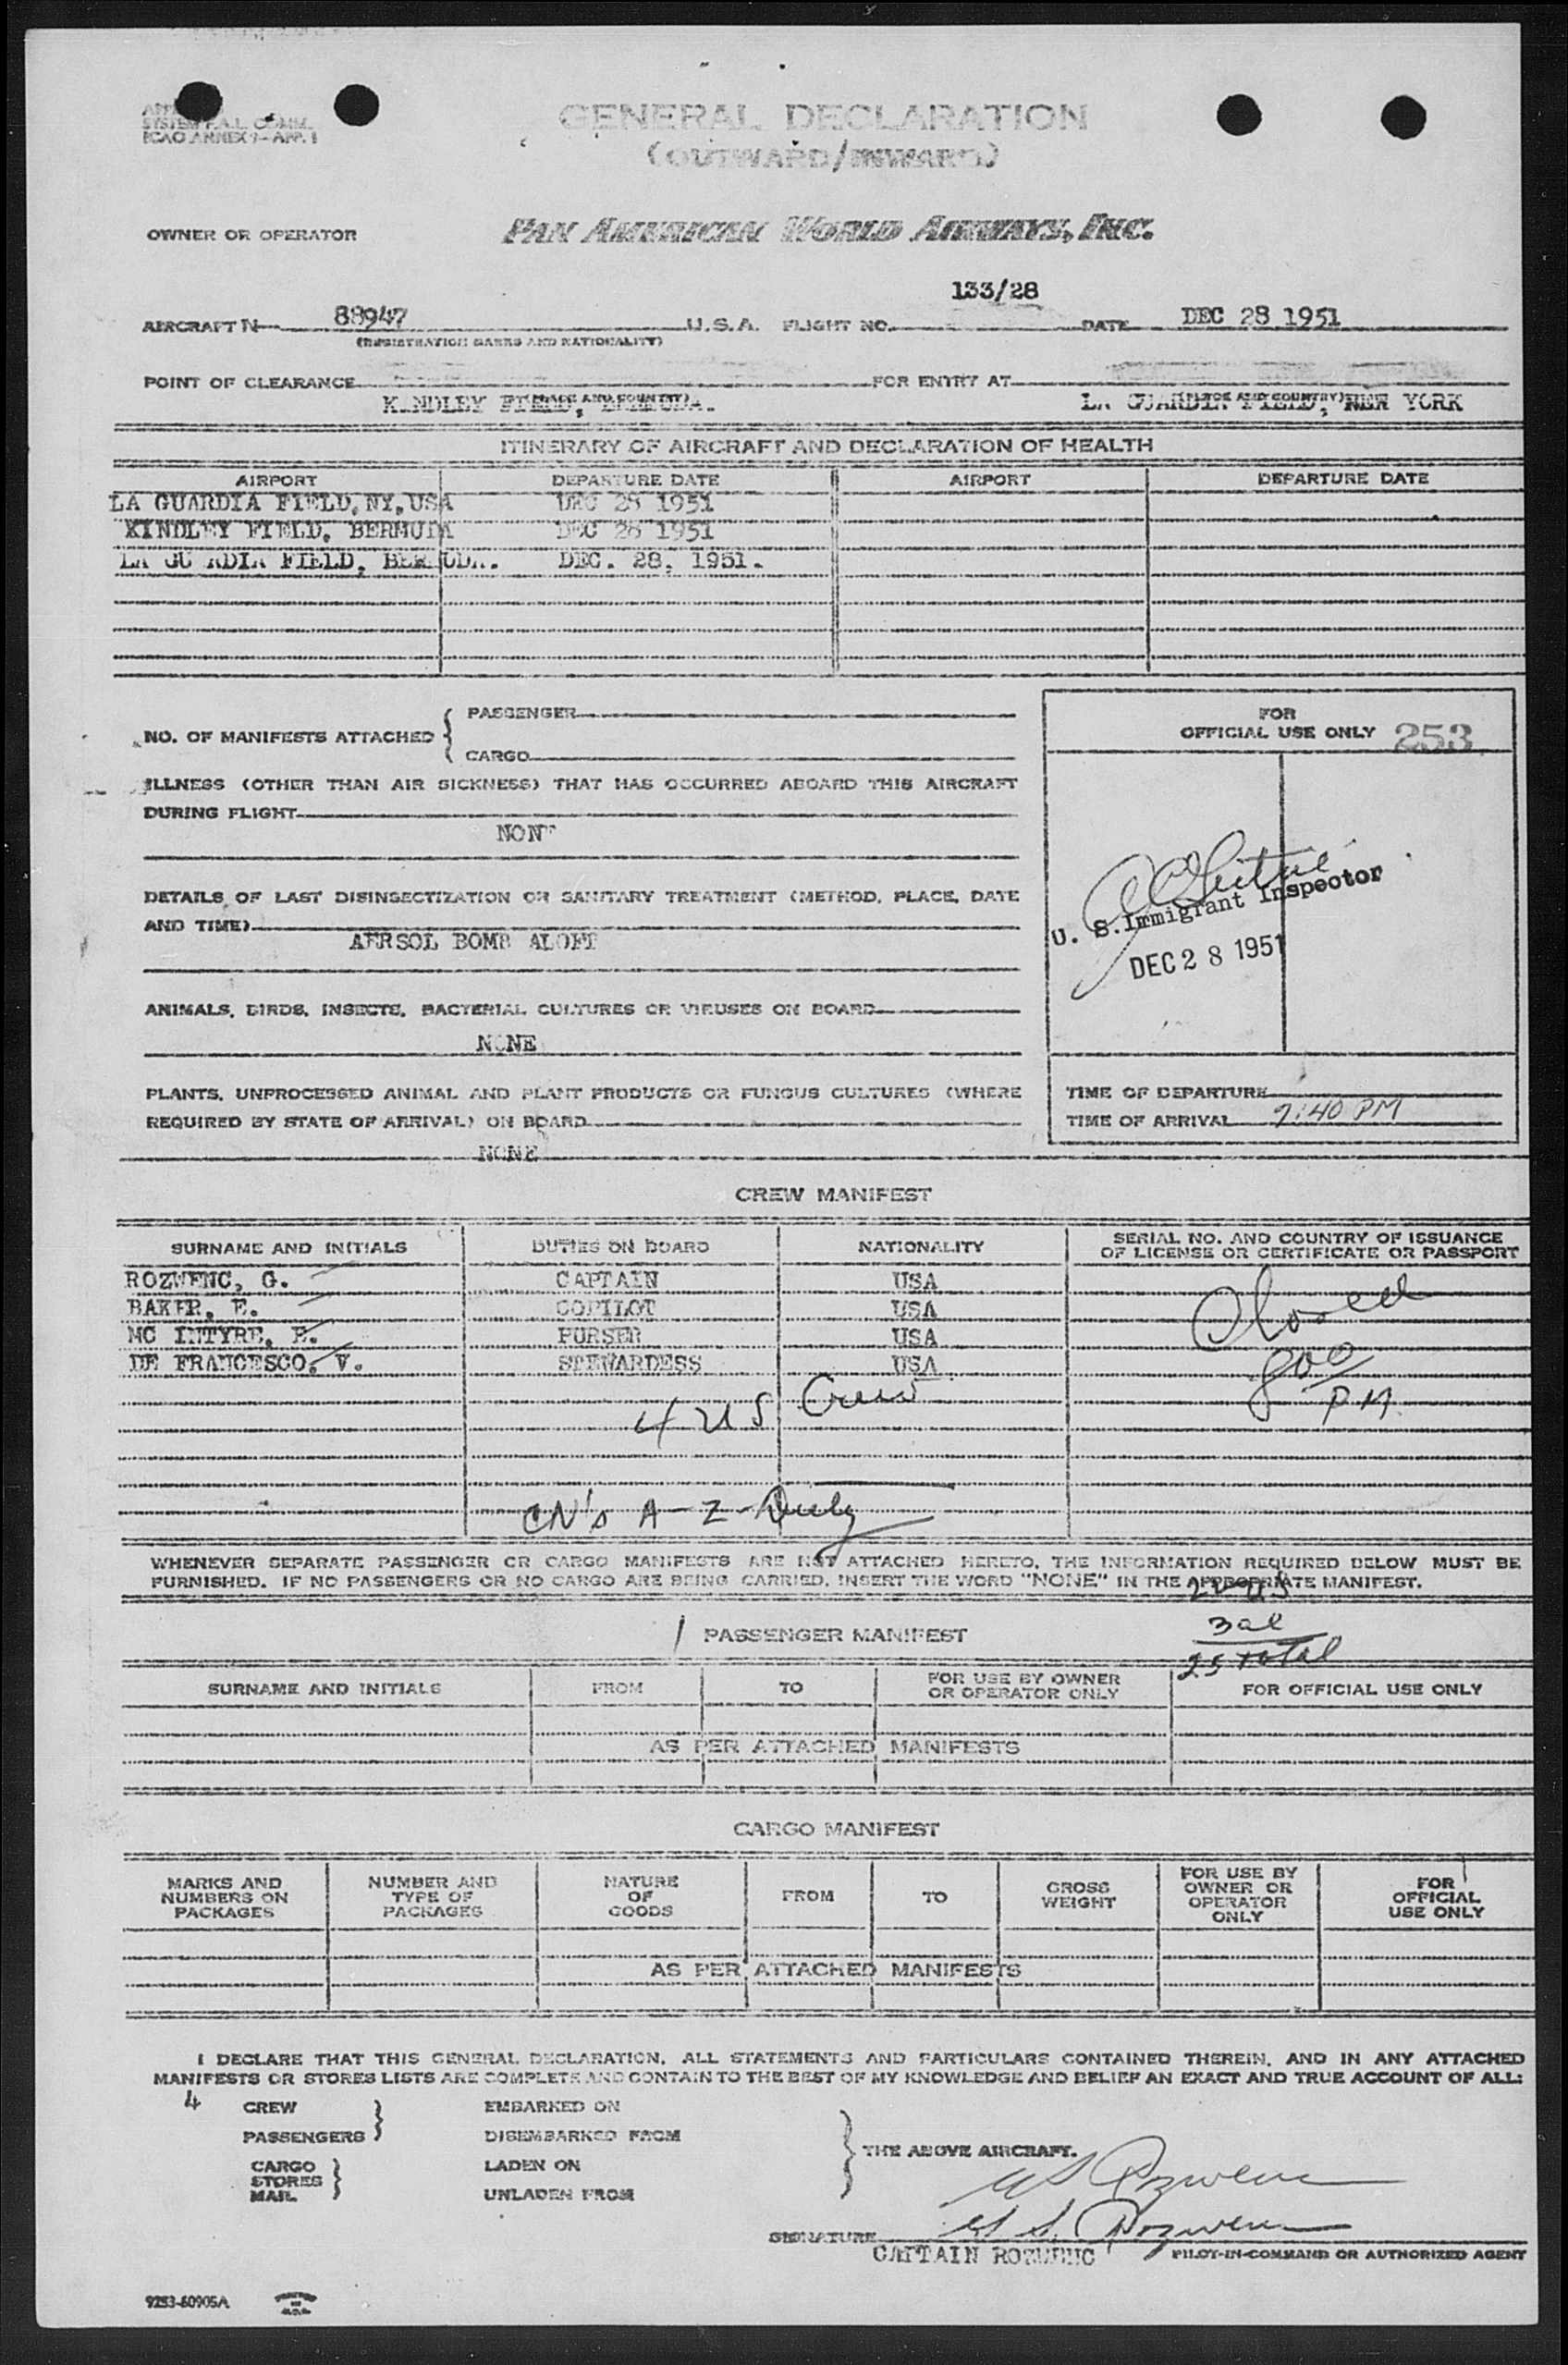 SYSTEM F.A.L. COMM.
ICAO ANNEX 9 - APP. 1
GENERAL DECLARATION
(OUTWARD/INWARD)
OWNER OR OPERATOR
PAN AMERICAN WORLD AIRWAYS, INC.
133/28
AIRCRAFT N 88947 U.S.A. FLIGHT NO. DATE DEC 28 1951
(REGISTRATION MARKS AND NATIONALITY)
POINT OF CLEARANCE FOR ENTRY AT
KINDLEY FIELD, BERMUDA. (PLACE AND COUNTRY) LA GUARDIA FIELD, NEW YORK (PLACE AND COUNTRY)
ITINERARY OF AIRCRAFT AND DECLARATION OF HEALTH
AIRPORT DEPARTURE DATE AIRPORT DEPARTURE DATE
LA GUARDIA FIELD, NY, USA DEC 28 1951
KINDLEY FIELD, BERMUDA DEC 28 1951
LA GU RDIA FIELD, BERMUDA. DEC. 28, 1951.
NO. OF MANIFESTS ATTACHED { PASSENGER
CARGO
FOR
OFFICIAL USE ONLY 253
ILLNESS (OTHER THAN AIR SICKNESS) THAT HAS OCCURRED ABOARD THIS AIRCRAFT
DURING FLIGHT
NON
DETAILS OF LAST DISINSECTIZATION OR SANITARY TREATMENT (METHOD, PLACE, DATE
AND TIME)
AERSOL BOMB ALOFT
U. S. Immigrant Inspector
DEC 28 1951
ANIMALS, BIRDS, INSECTS, BACTERIAL CULTURES OR VIRUSES ON BOARD
NONE
PLANTS, UNPROCESSED ANIMAL AND PLANT PRODUCTS OR FUNGUS CULTURES (WHERE
REQUIRED BY STATE OF ARRIVAL) ON BOARD
NONE
TIME OF DEPARTURE
TIME OF ARRIVAL 7:40 PM
CREW MANIFEST
SURNAME AND INITIALS DUTIES ON BOARD NATIONALITY SERIAL NO. AND COUNTRY OF ISSUANCE
OF LICENSE OR CERTIFICATE OR PASSPORT
ROZWENC, G. CAPTAIN USA
BAKER, E. COPILOT USA
MC INTYRE, E. PURSER USA
DE FRANCESCO, V. STEWARDESS USA
Closed
800
PM
4 US Crew
CN's A-Z-Duly
WHENEVER SEPARATE PASSENGER OR CARGO MANIFESTS ARE NOT ATTACHED HERETO, THE INFORMATION REQUIRED BELOW MUST BE
FURNISHED. IF NO PASSENGERS OR NO CARGO ARE BEING CARRIED, INSERT THE WORD "NONE" IN THE APPROPRIATE MANIFEST.
22 US
3 al
25 total
PASSENGER MANIFEST
SURNAME AND INITIALS FROM TO FOR USE BY OWNER
OR OPERATOR ONLY FOR OFFICIAL USE ONLY
AS PER ATTACHED MANIFESTS
CARGO MANIFEST
MARKS AND
NUMBERS ON
PACKAGES
NUMBER AND
TYPE OF
PACKAGES
NATURE
OF
GOODS
FROM
TO
GROSS
WEIGHT
FOR USE BY
OWNER OR
OPERATOR
ONLY
FOR
OFFICIAL
USE ONLY
AS PER ATTACHED MANIFESTS
I DECLARE THAT THIS GENERAL DECLARATION, ALL STATEMENTS AND PARTICULARS CONTAINED THEREIN, AND IN ANY ATTACHED
MANIFESTS OR STORES LISTS ARE COMPLETE AND CONTAIN TO THE BEST OF MY KNOWLEDGE AND BELIEF AN EXACT AND TRUE ACCOUNT OF ALL:
4 CREW EMBARKED ON
PASSENGERS DISEMBARKED FROM
THE ABOVE AIRCRAFT.
CARGO LADEN ON
STORES
MAIL UNLADEN FROM
G S Rozwenc
SIGNATURE G S. Rozwenc
CAPTAIN ROZWENC PILOT-IN-COMMAND OR AUTHORIZED AGENT
9253-60905A